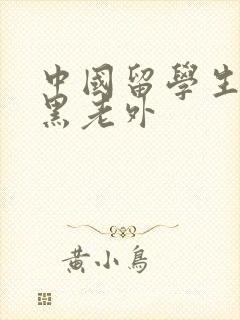 中國留學生
黑老外
黃小鳥